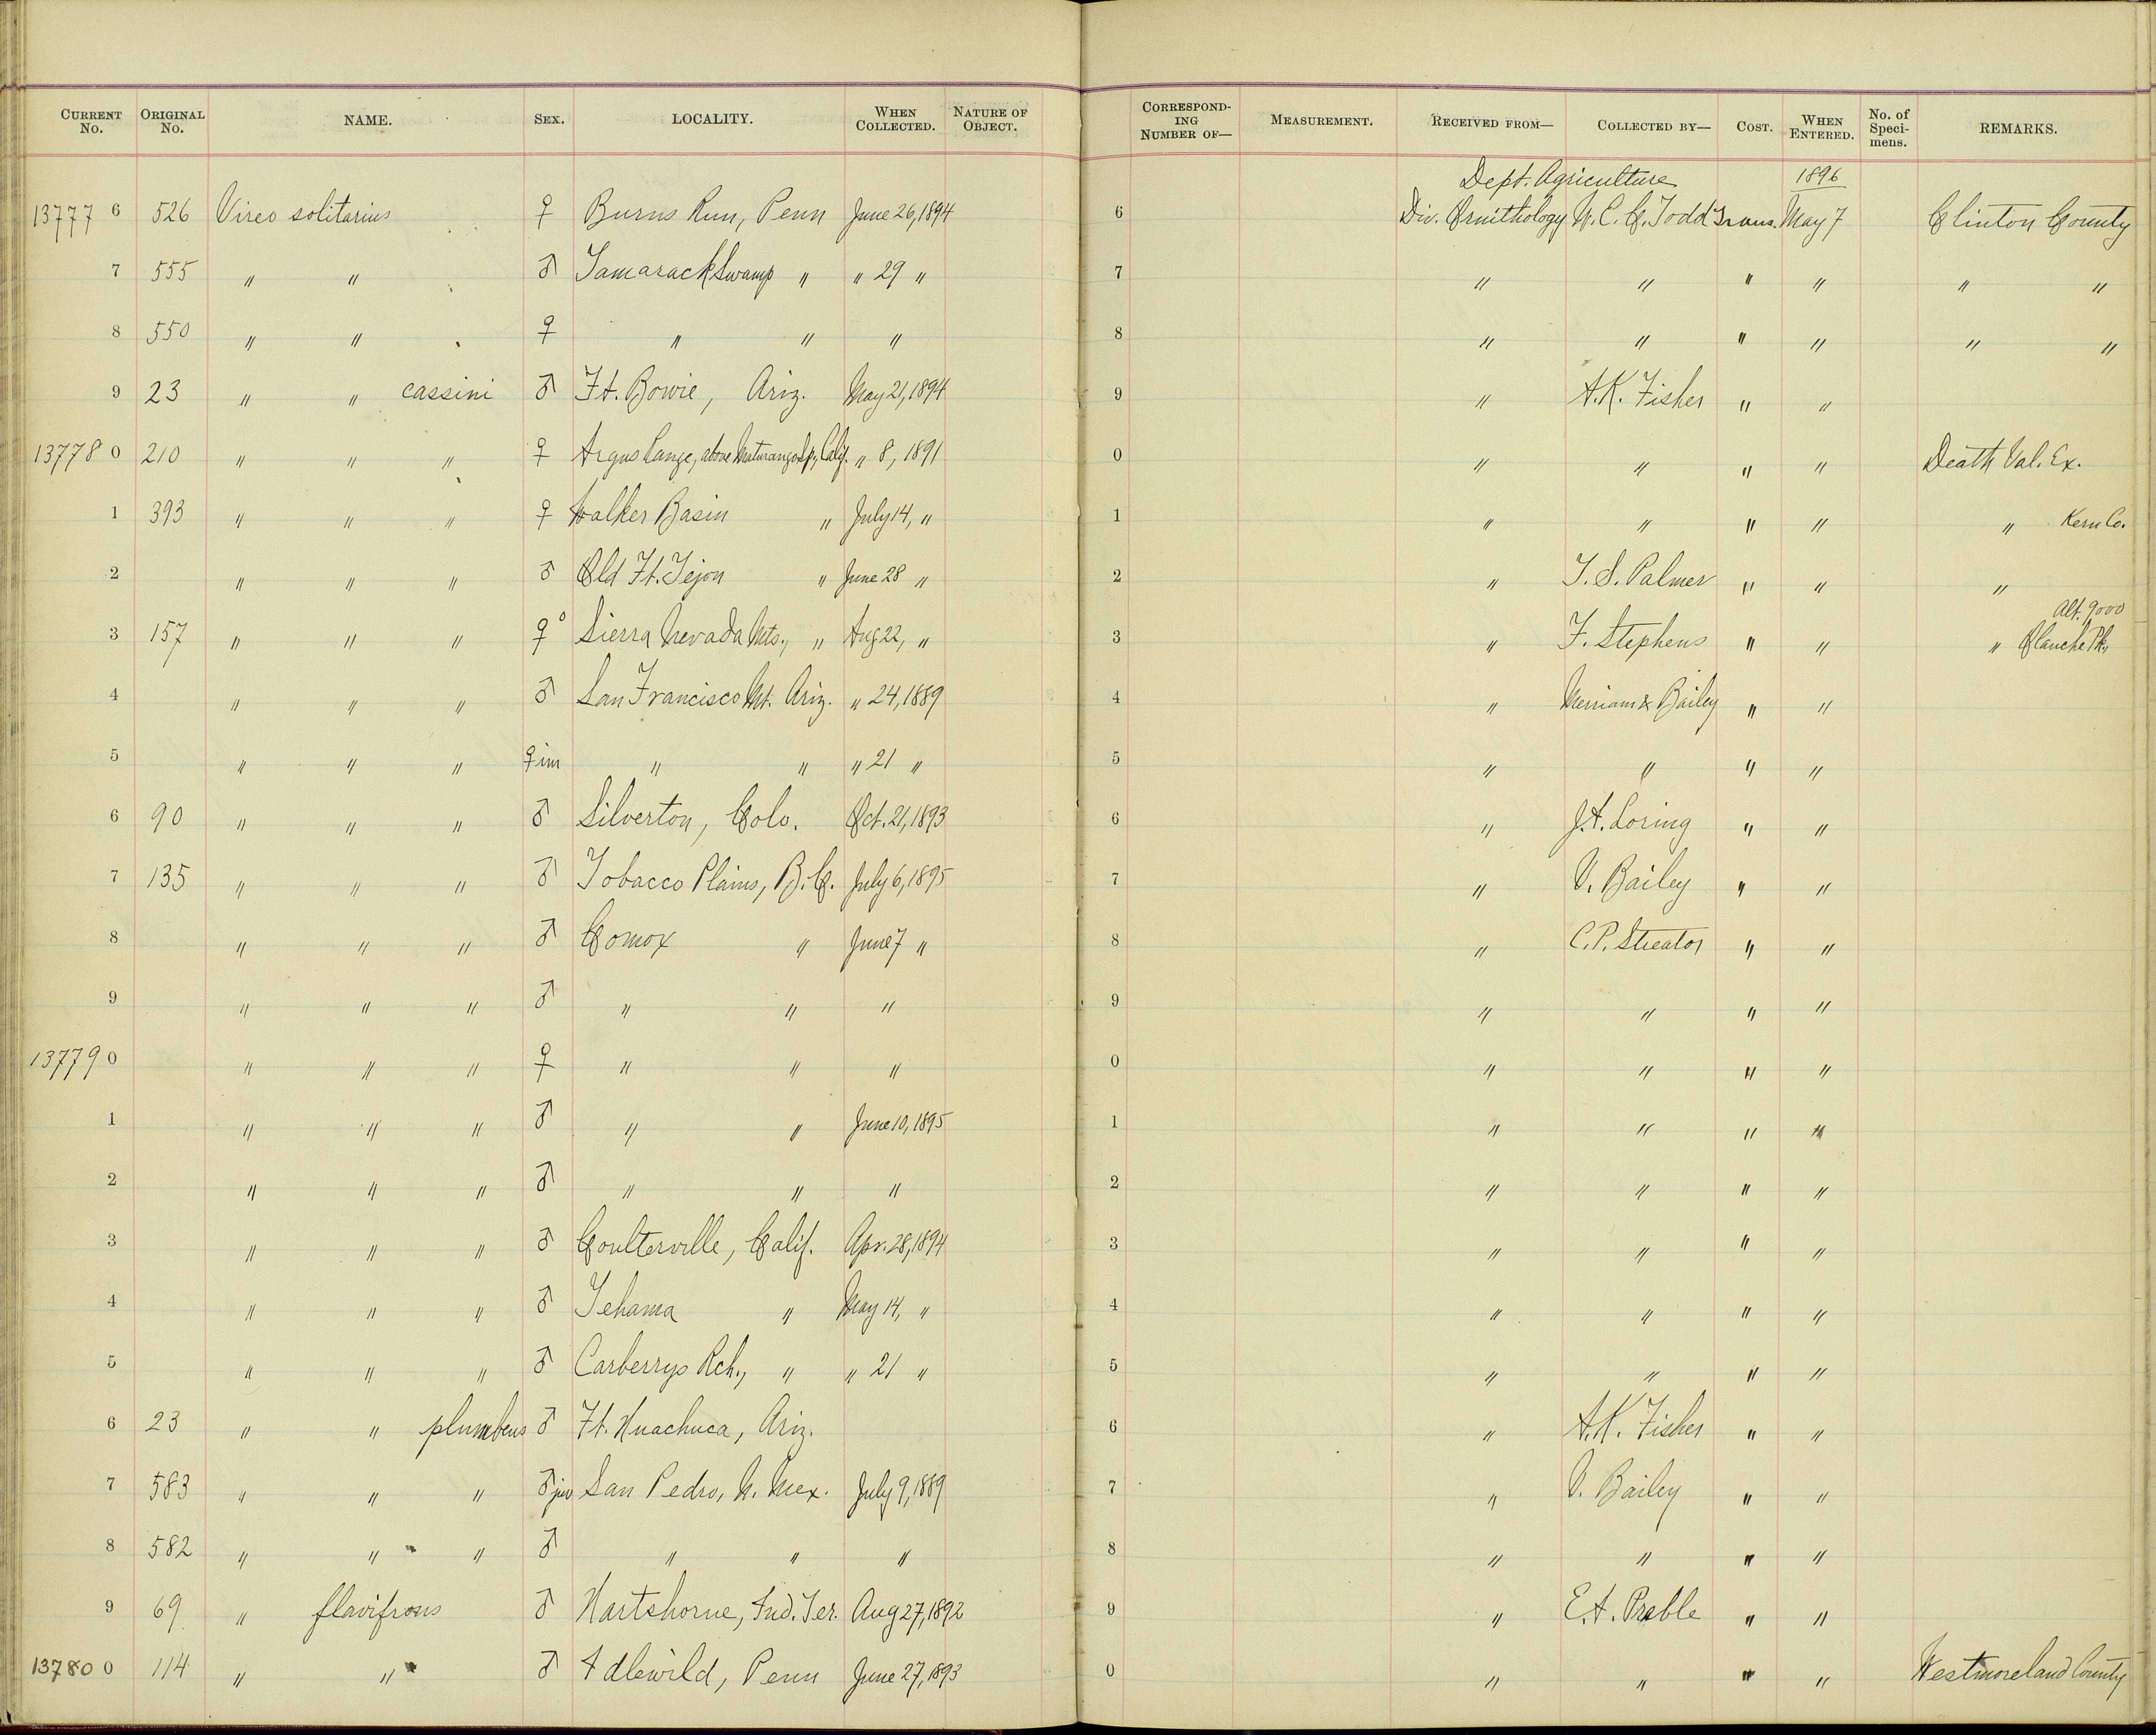 CURRENT No. ORIGINAL No. NAME. SEX. LOCALITY. WHEN COLLECTED. NATURE OF OBJECT. CORRESPONDING NUMBER OF— MEASUREMENT. RECEIVED FROM— COLLECTED BY— COST. WHEN ENTERED. No. of Specimens. REMARKS.
Dept. Agriculture 1896
13777 6 526 Vireo solitarius ♀ Burns Run, Penn June 26, 1894 6 Div. Ornithology W. E. C. Todd Trans. May 7 Clinton County
7 555 " " ♂ Tamarack Swamp " " 29 " 7 " " " " " "
8 550 " " ♀ " " " 8 " " " " " "
9 23 " " cassini ♂ Ft. Bowie, Ariz. May 21, 1894 9 " A.K. Fisher " "
13778 0 210 " " " ♀ Argus Range, above Maturango Sp., Calif. " 8, 1891 0 " " " " Death Val. Ex.
1 393 " " " ♀ Walker Basin " July 14, " 1 " " " " " Kern Co.
2 " " " ♂ Old Ft. Tejon " June 28 " 2 " T. S. Palmer " " "
Alt. 9000
3 157 " " " ♀° Sierra Nevada Mts., " Aug 22, " 3 " F. Stephens " " " Olanche Pk.,
4 " " " ♂ San Francisco Mt. Ariz. " 24, 1889 4 " Merriam & Bailey " "
5 " " " ♀ im " " " 21 " 5 " " " "
6 90 " " " ♂ Silverton, Colo. Oct. 21, 1893 6 " J.A. Loring " "
7 135 " " " ♂ Tobacco Plains, B.C. July 6, 1895 7 " V. Bailey " "
8 " " " ♂ Comox " June 7 " 8 " C.P. Streator " "
9 " " " ♂ " " " 9 " " " "
13779 0 " " " ♀ " " " 0 " " " "
1 " " " ♂ " " June 10, 1895 1 " " " "
2 " " " ♂ " " " 2 " " " "
3 " " " ♂ Coulterville, Calif. Apr. 28, 1894 3 " " " "
4 " " " ♂ Tehama " May 14, " 4 " " " "
5 " " " ♂ Carberrys Rch., " " 21 " 5 " " " "
6 23 " " plumbeus ♂ Ft. Huachuca, Ariz. 6 " A.K. Fisher " "
7 583 " " " ♂ juv San Pedro, N. Mex. July 9, 1889 7 " V. Bailey " "
8 582 " " " ♂ " " " 8 " " " "
9 69 " flavifrons ♂ Hartshorne, Ind. Ter. Aug 27, 1892 9 " E.A. Preble " "
13780 0 114 " " ♂ Idlewild, Penn June 27, 1893 0 " " " " Westmoreland County